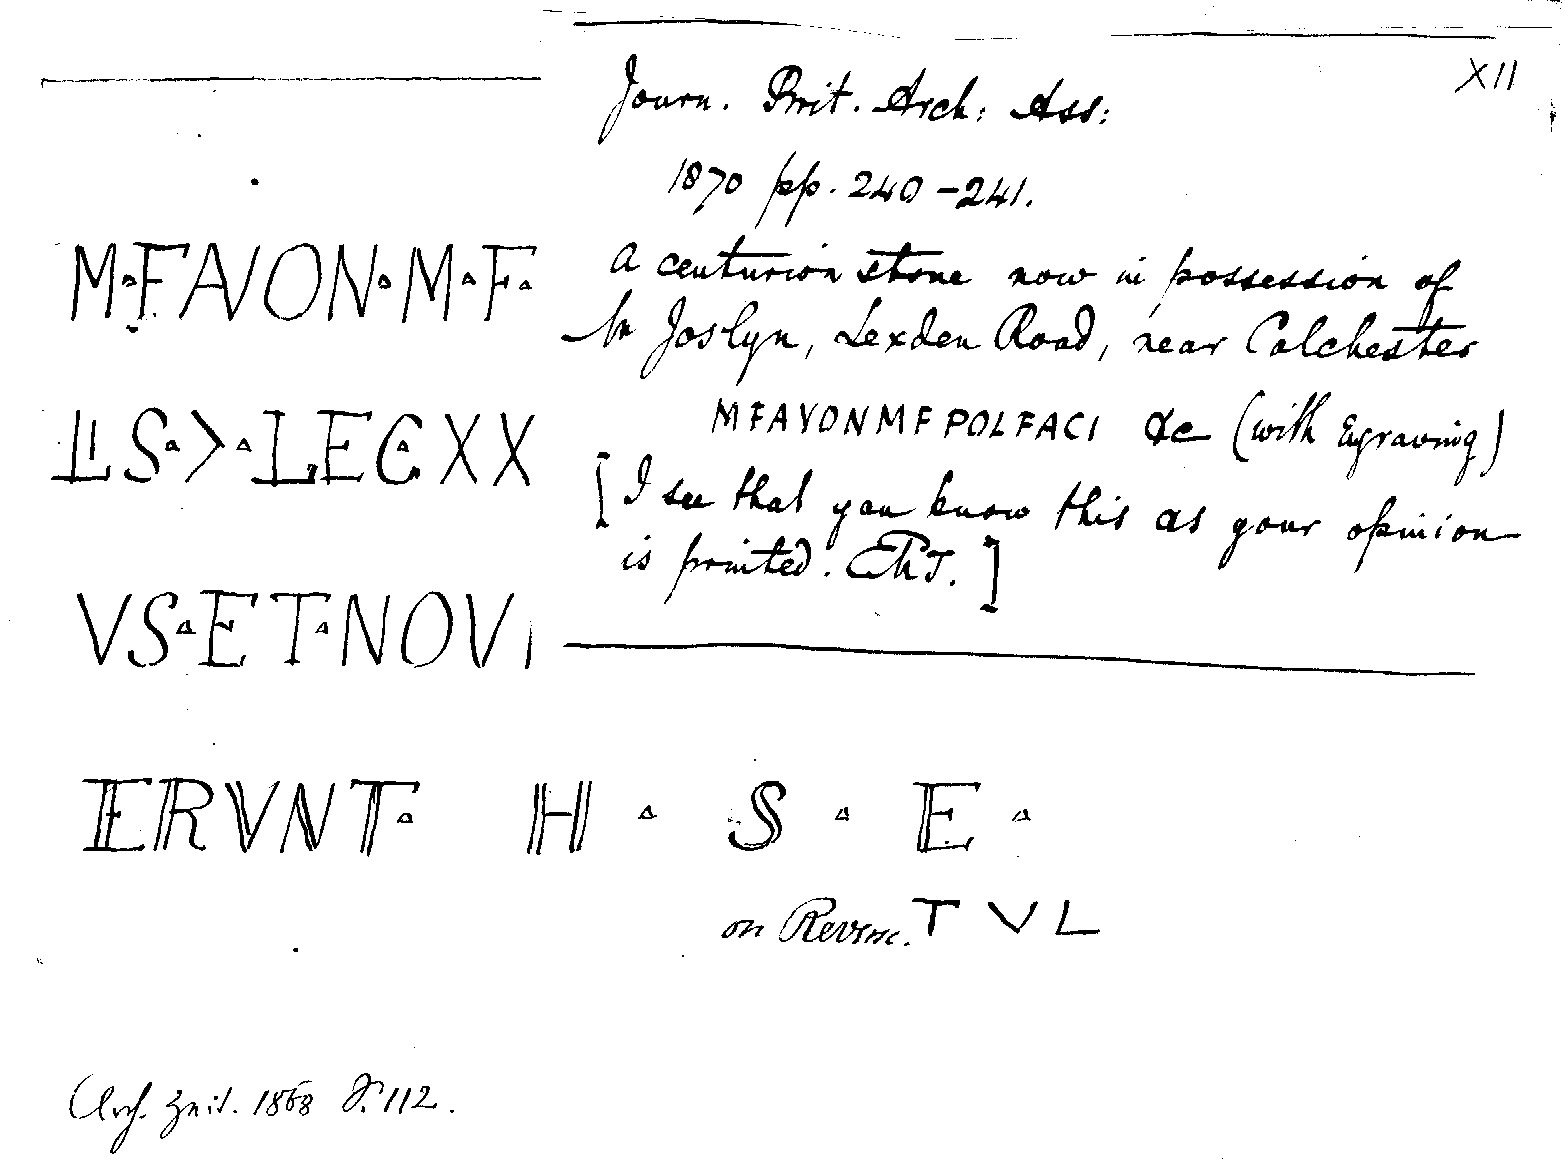 XII
Journ. Brit. Arch: Ass:
1870 pp. 240-241.
A centurion stone now in possession of
Mr Joslyn, Lexden Road, near Colchester
MFAVONMFPOLFACI &c (with Egraving)
[I see that you know this as your opinion
is printed. ]
M·FAVON·M·F·
LIS·>·LEGXX
VS·ET·NOVI
ERVNT· H · S · E ·
on Reverse. T V L
Arch. Zeit. 1868 S. 112.